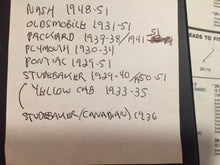 NASH 1948-51
OLDSMOBILE 1931-51
PACKARD 1939-38/1941-51
PLYMOUTH 1930-34
PONTIAC 1929-51
STUDEBAKER 1929-40/50-51
(YELLOW CAB 1933-35
STUDEBAKER (CANADIAN) 1936
LEADS TO FIT